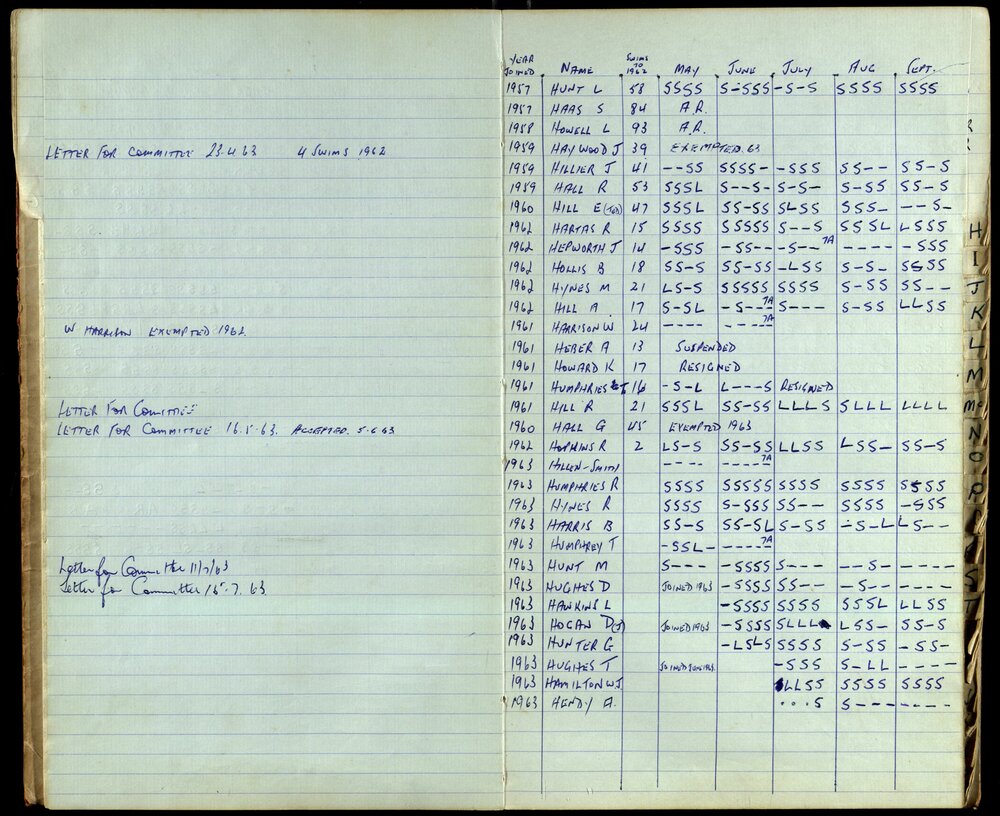 LETTER FOR COMMITTEE 23.4.63 4 SWIMS 1962
W HARRISON EXEMPTED 1962
LETTER FOR COMMITTEE
LETTER FOR COMMITTEE 16.5.63. ACCEPTED. 5.6.63
Letter for Committee 11/7/63
Letter for Committee 16.7.63
YEAR JOINED NAME SWIMS TO 1962 MAY JUNE JULY AUG SEPT.
1957 HUNT L 58 SSSS S-SSS -S-S SSSS SSSS
1957 HAAS S 84 A.R.
1958 HOWELL L 93 A.R.
1959 HAYWOOD J 39 EXEMPTED.63
1959 HILLIER J 41 --SS SSSS- -SSS SS-- SS-S
1959 HALL R 53 SSSL S---S -S-S- S-SS SS-S
1960 HILL E 47 SSSL SS-SS SLSS SSS- --S-
1962 HARTAS R 15 SSSS SSSSS S--S SSSL LSSS
1962 HEPWORTH J 14 -SSS -SS-- -S-- 7A ---- -SSS
1962 HOLLIS B 18 SS-S SS-SS -LSS S-S- SSSS
1962 HYNES M 21 LS-S SSSSS SSSS S-SS SS--
1962 HILL A. 17 S-SL -S--- 7A S--- S-SS LLSS
1961 HARRISON W 24 ---- ----- 7A
1961 HEBER A 13 SUSPENDED
1961 HOWARD K 17 RESIGNED
1961 HUMPHRIES 16 -S-L L---S RESIGNED
1961 HILL R 21 SSSL SS-SS LLLS SLLL LLLL
1960 HALL G 45 EXEMPTED 1963
1962 HOPKINS R 2 LS-S SS-SS LLSS LSS- SS-S
1963 HILLEN-SMITH ---- ----- 7A
1963 HUMPHRIES R SSSS SSSSS SSSS SSSS SSSS
1963 HYNES R SSSS S-SSS SS-- SSSS -SSS
1963 HARRIS B SS-S SS-SL S-SS -S-L LS--
1963 HUMPHREY T -SSL- ----- 7A
1963 HUNT M S--- -SSSS S--- --S- ----
1963 HUGHES D JOINED 1963 -SSSS SS-- -S-- ----
1963 HAWKINS L -SSSS SSSS SSSL LLSS
1963 HOGAN D(J) JOINED 1963 -SSSS SLLL LSS- SS-S
1963 HUNTER G -LSLS SSSS S-SS -SS-
1963 HUGHES T JOINED JUNE 1963 -SSS S-LL ----
1963 HAMILTON WJ LLSS SSSS SSSS
1963 HENDY A. ...S S--- ----
H
I
J
K
L
M
Mc
N
O
P
R
S
T